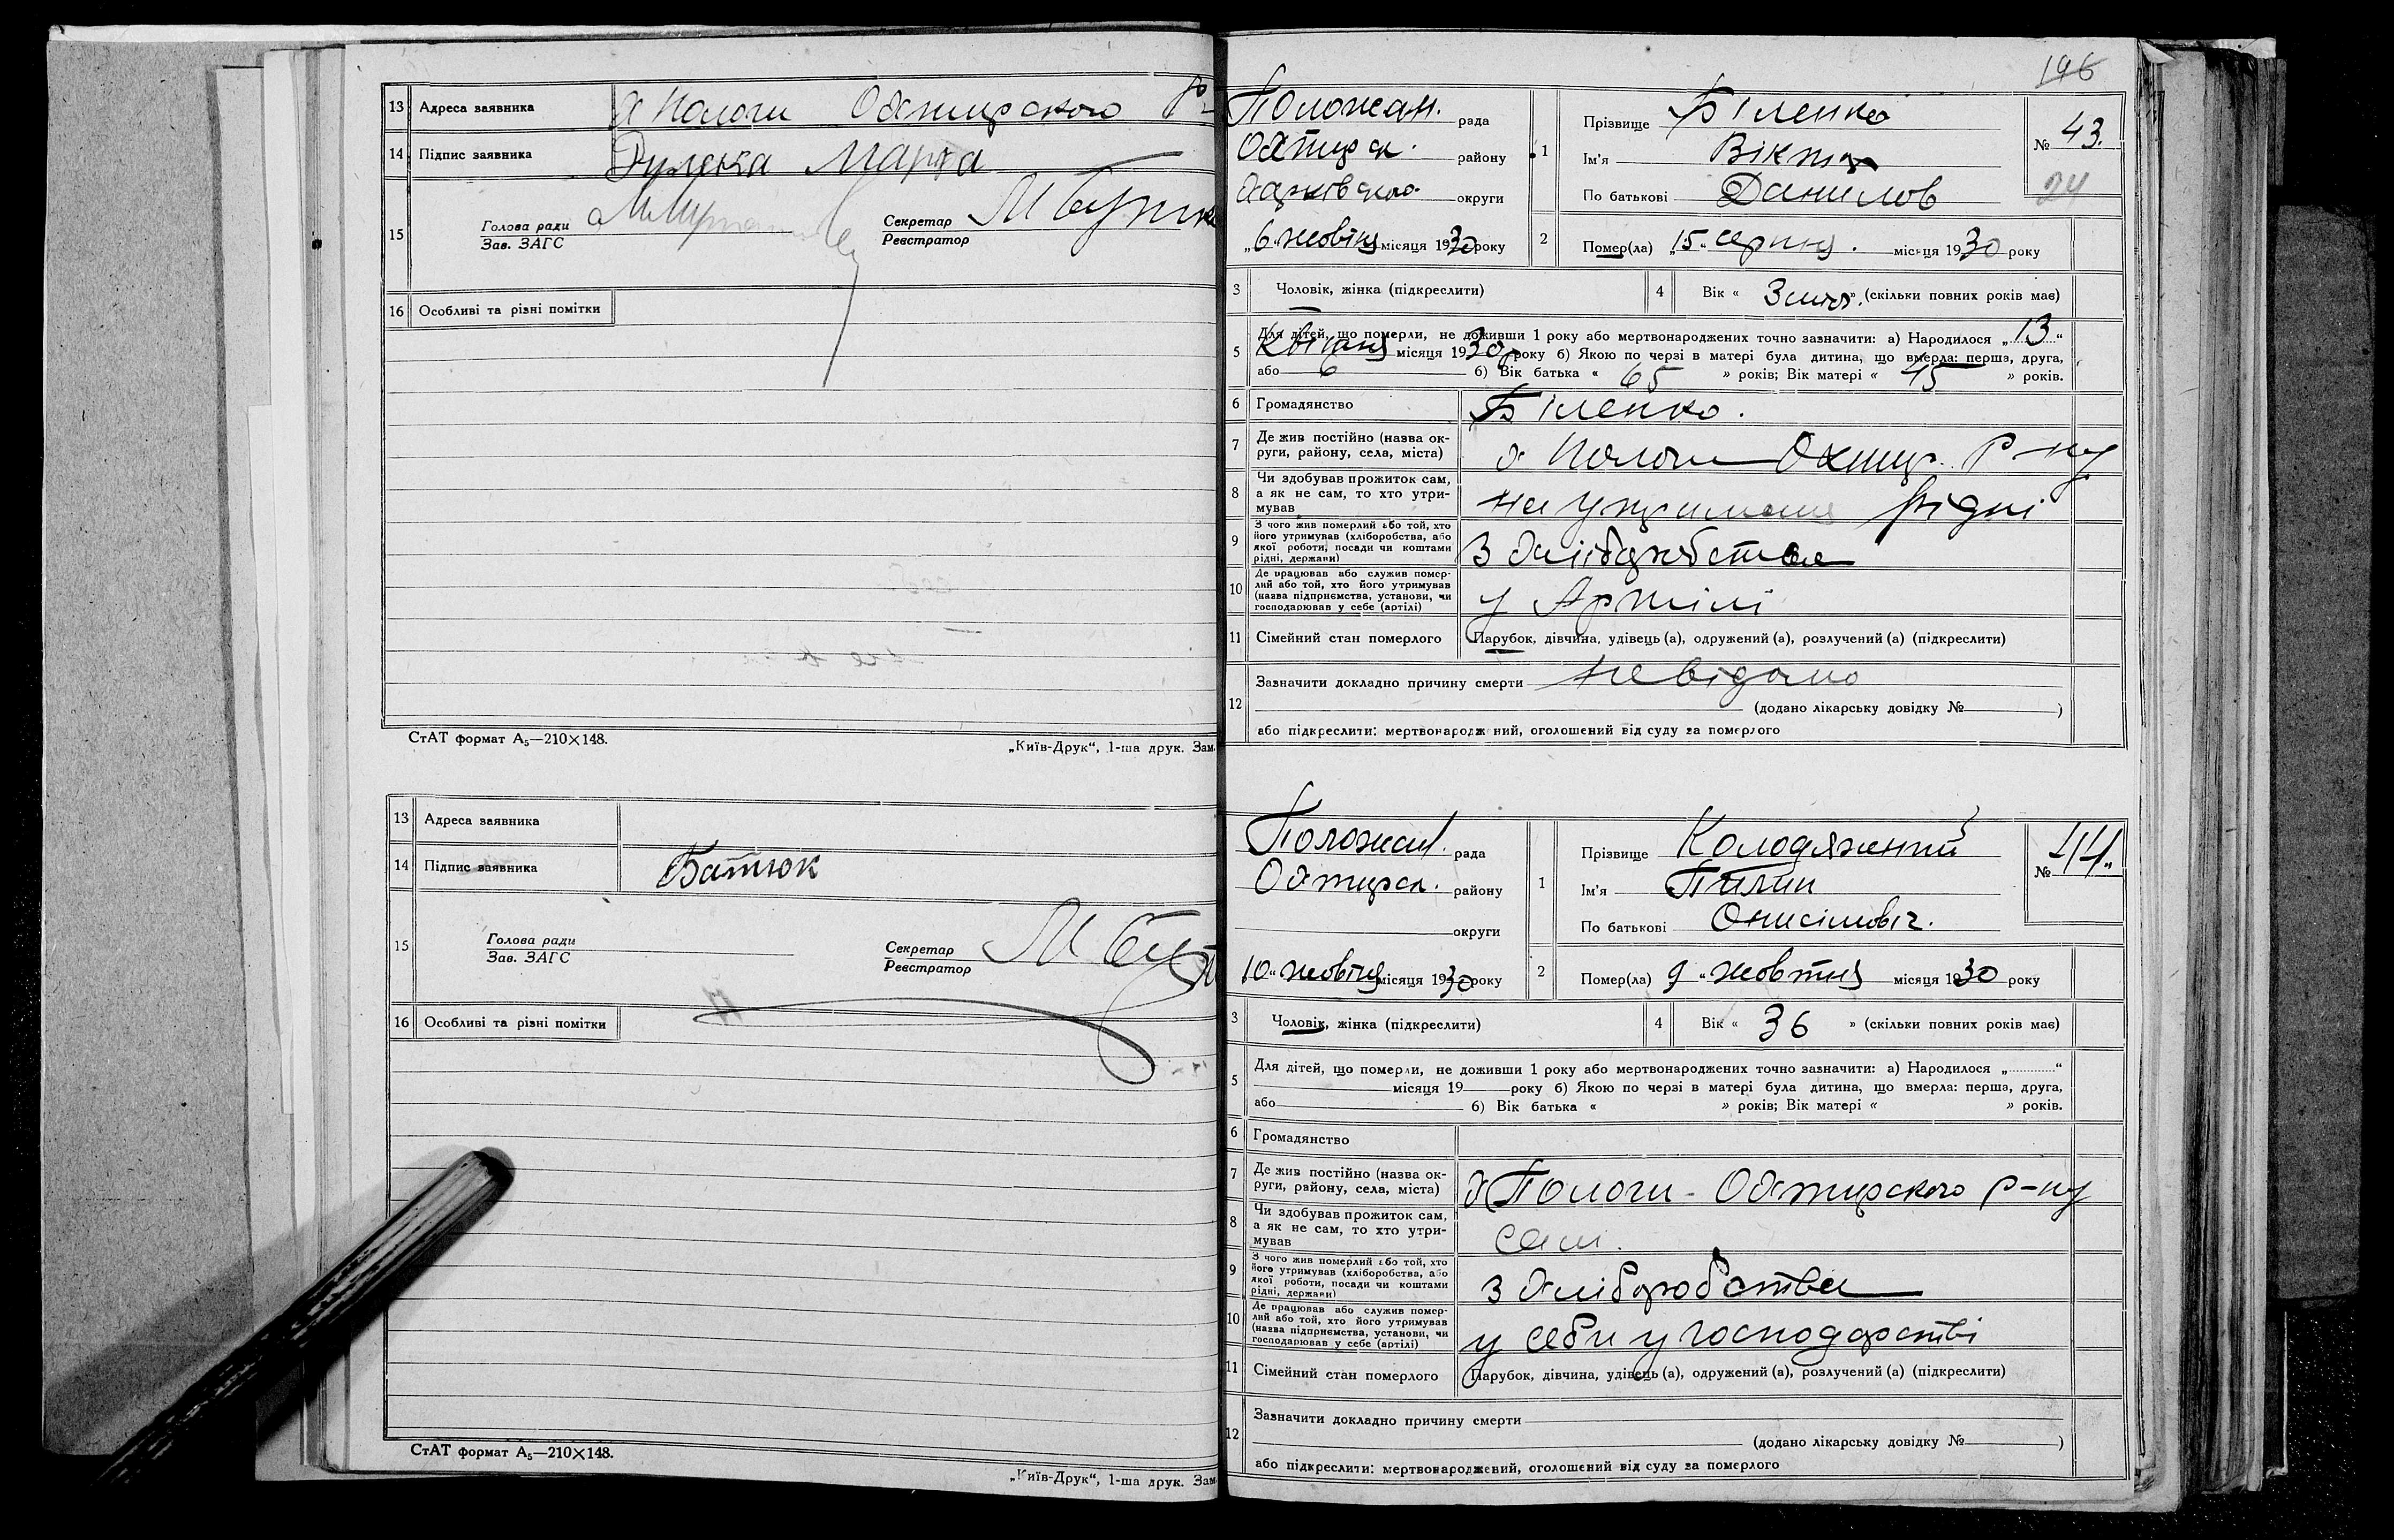 13 Адреса заявника х Пологи Охтирского Р-
14 Підпис заявника Марфа
15 Голова ради
Зав. ЗАГС
Секретар
Реєстратор
16 Особливі та різні помітки
СтАТ формат А₅—210×148.
„Київ-Друк“, 1-ша друк. Зам.
13 Адреса заявника
14 Підпис заявника Батюк
15 Голова ради
Зав. ЗАГС
Секретар
Реєстратор
16 Особливі та різні помітки
СтАТ формат А₅—210×148.
„Київ-Друк“, 1-ша друк. Зам.
196
Положан. рада
Охтирск. району
Харківского округи
„6“ жовтня місяця 1930 року
1 Прізвище Біленко
Ім'я Віктор
По батькові Данилов
№ 43.
24
2 Помер(ла) „15“ серпня. місяця 1930 року
3 Чоловік, жінка (підкреслити)
4 Вік « 3 міся». (скільки повних років має)
5 Для дітей, що померли, не доживши 1 року або мертвонароджених точно зазначити: а) Народилося „13“
Квітня місяця 1930 року б) Якою по черзі в матері була дитина, що вмерла: перша, друга,
або 6 б) Вік батька « 65 » років; Вік матері « 45 » років.
6 Громадянство Біленко.
7 Де жив постійно (назва округи, району, села, міста) х Пологи Охтир. Р-ну
8 Чи здобував прожиток сам, а як не сам, то хто утримував на утриманні рідні
9 З чого жив померлий або той, хто його утримував (хліборобства, або якої роботи, посади чи коштами рідні, держави) З хліборобства
10 Де працював або служив померлий або той, хто його утримував (назва підприємства, установи, чи господарював у себе (артілі) у Артілі
11 Сімейний стан померлого Парубок, дівчина, удівець(а), одружений(а), розлучений(а) (підкреслити)
12 Зазначити докладно причину смерти невідомо
(додано лікарську довідку № )
або підкреслити: мертвонароджений, оголошений від суду за померлого
Положан. рада
Охтирск. району
округи
10 „ жовтня місяця 1930 року
1 Прізвище Колодяжний
Ім'я Пилип
По батькові Онисімович.
№ 44.
2 Помер(ла) 9 „ жовтня місяця 1930 року
3 Чоловік, жінка (підкреслити)
4 Вік « 36 » (скільки повних років має)
5 Для дітей, що померли, не доживши 1 року або мертвонароджених точно зазначити: а) Народилося „ “
місяця 19 року б) Якою по черзі в матері була дитина, що вмерла: перша, друга,
або б) Вік батька « » років; Вік матері « » років.
6 Громадянство
7 Де жив постійно (назва округи, району, села, міста) х Пологи - Охтирского р-ну
8 Чи здобував прожиток сам, а як не сам, то хто утримував сам.
9 З чого жив померлий або той, хто його утримував (хліборобства, або якої роботи, посади чи коштами рідні, держави) З хліборобства
10 Де працював або служив померлий або той, хто його утримував (назва підприємства, установи, чи господарював у себе (артілі) у себи у господарстві
11 Сімейний стан померлого Парубок, дівчина, удівець(а), одружений(а), розлучений(а) (підкреслити)
12 Зазначити докладно причину смерти
(додано лікарську довідку № )
або підкреслити: мертвонароджений, оголошений від суду за померлого